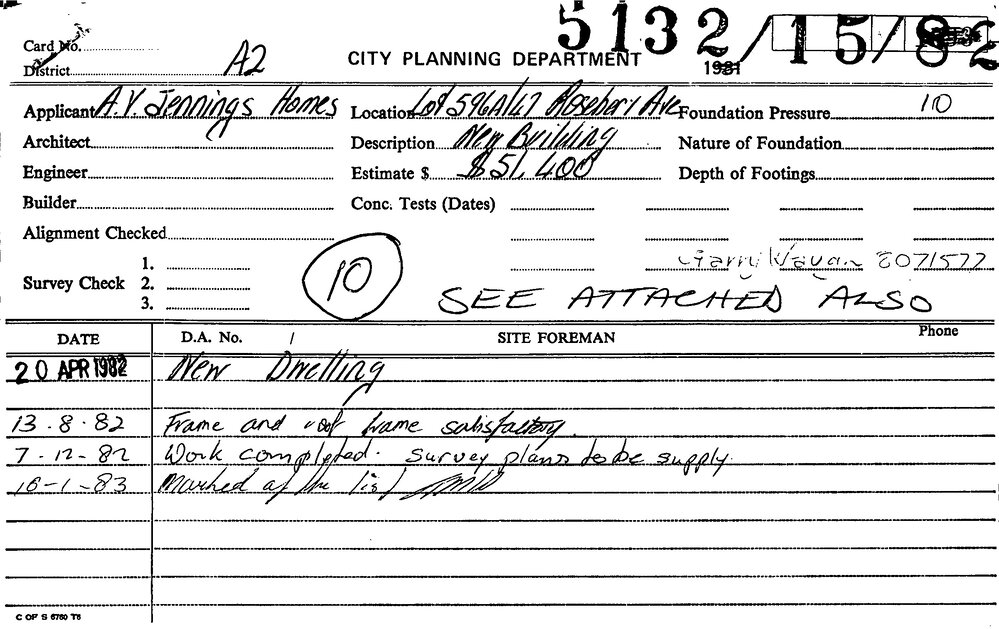 5132/15/82
Card No.
District A2 CITY PLANNING DEPARTMENT 1981
Applicant A.V. Jennings Homes Location Lot 596A/47 Rosebery Ave Foundation Pressure 10
Architect Description New Building Nature of Foundation
Engineer Estimate $ $51,400 Depth of Footings
Builder Conc. Tests (Dates)
Alignment Checked
1. Garry 8071577
Survey Check 2. 10 SEE ATTACHED ALSO
3.
DATE D.A. No. / SITE FOREMAN Phone
20 APR 1982 New Dwelling
13.8.82 Frame and roof frame satisfactory.
7-12-82 Work completed. Survey plans to be supply.
16-1-83 Marked of the list
C OF S 6760 T6